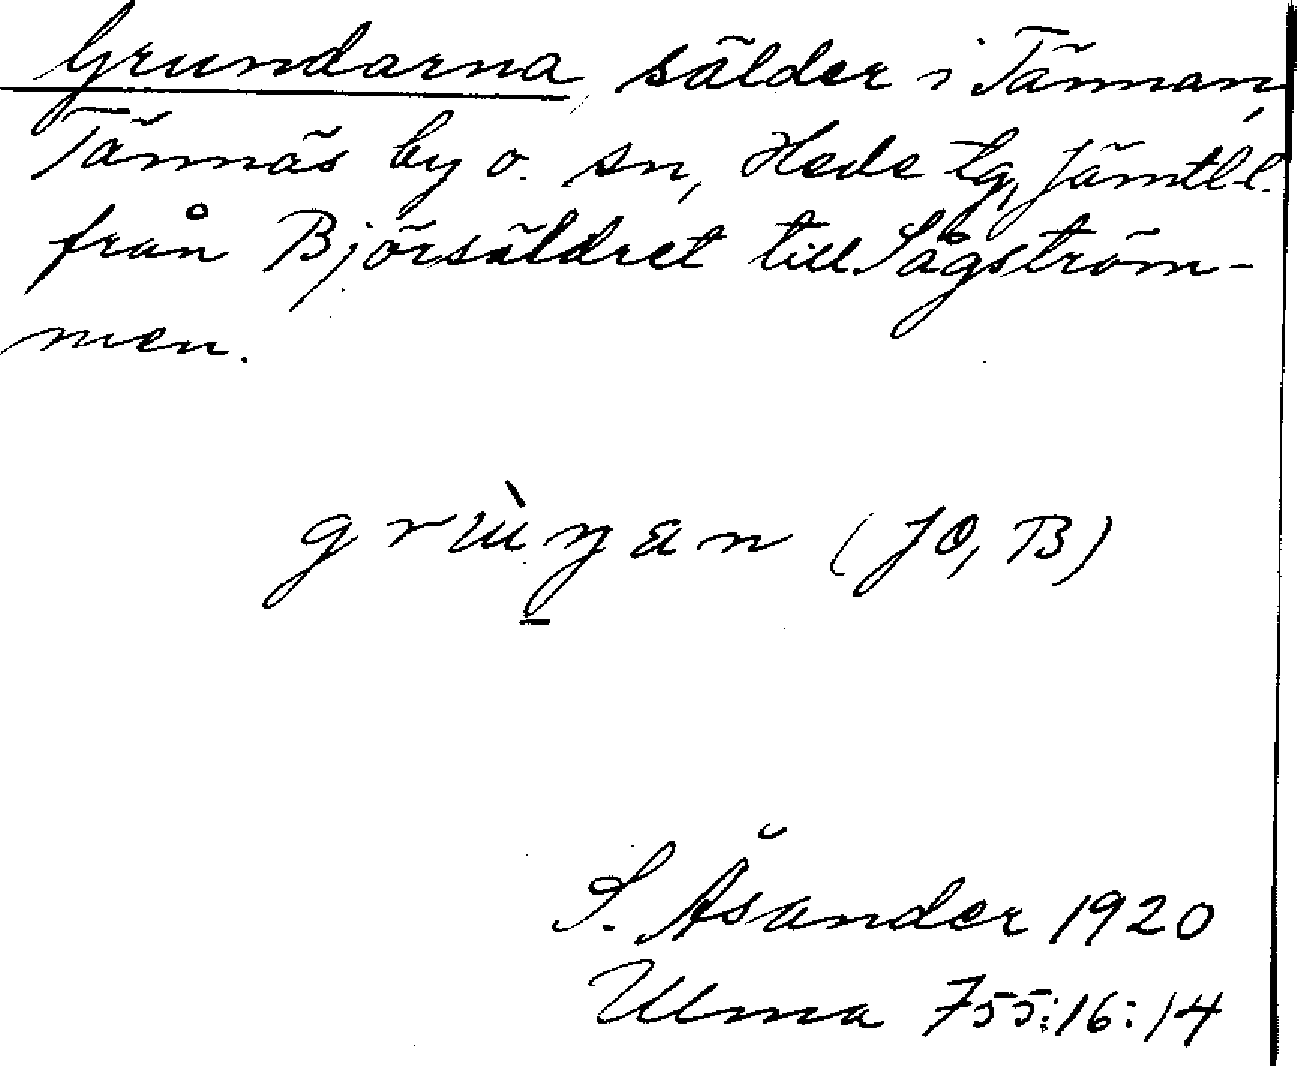 Grundarna, sälder i Tännan,
Tännäs by o. sn, Hede tg, Jämtl. l.
från Björsäldret till Sågström-
men.
(JO, B)
S. Åsander 1920
Ulma 755:16:14